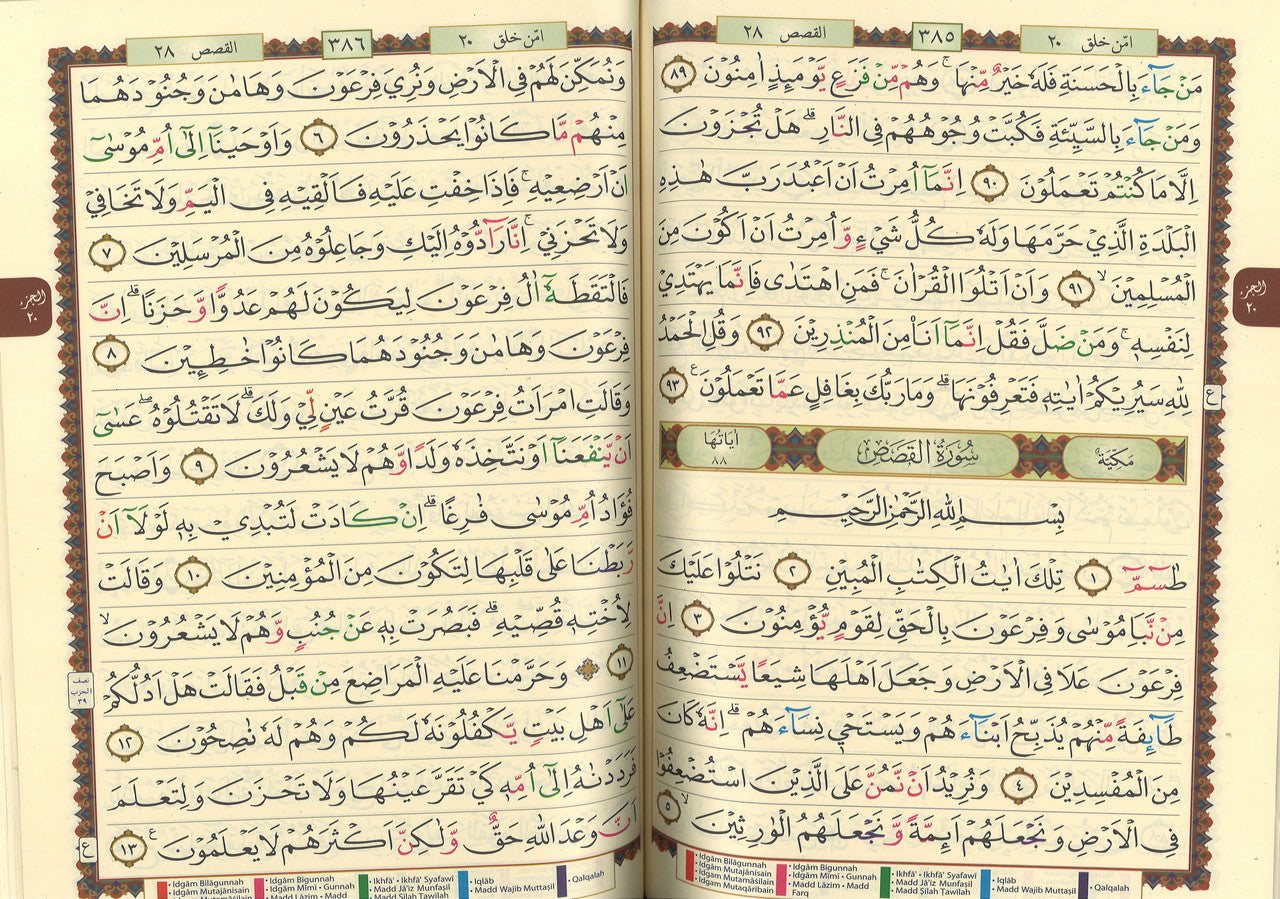 امّن خلق ٢٠
٣٨٥
القصص ٢٨
مَنْ جَٓاءَ بِالْحَسَنَةِ فَلَهُ خَيْرٌ مِنْهَاۚ وَهُمْ مِنْ فَزَعٍ يَوْمَئِذٍ اٰمِنُونَ ٨٩
وَمَنْ جَٓاءَ بِالسَّيِّئَةِ فَكُبَّتْ وُجُوهُهُمْ فِي النَّارِۜ هَلْ تُجْزَوْنَ
اِلَّا مَا كُنْتُمْ تَعْمَلُونَ ٩٠ اِنَّمَٓا اُمِرْتُ اَنْ اَعْبُدَ رَبَّ هٰذِهِ
الْبَلْدَةِ الَّذِي حَرَّمَهَا وَلَهُ كُلُّ شَيْءٍ وَاُمِرْتُ اَنْ اَكُونَ مِنَ
الْمُسْلِمِينَۙ ٩١ وَاَنْ اَتْلُوَا الْقُرْاٰنَۚ فَمَنِ اهْتَدٰى فَاِنَّمَا يَهْتَدِي
لِنَفْسِهِۚ وَمَنْ ضَلَّ فَقُلْ اِنَّمَٓا اَنَا۬ مِنَ الْمُنْذِرِينَ ٩٢ وَقُلِ الْحَمْدُ
لِلّٰهِ سَيُرِيكُمْ اٰيَاتِهِ فَتَعْرِفُونَهَاۜ وَمَا رَبُّكَ بِغَافِلٍ عَمَّا تَعْمَلُونَ ٩٣
مَكِّيَّةٌ
سُورَةُ الْقَصَصِ
اٰيَاتُهَا ٨٨
بِسْمِ اللّٰهِ الرَّحْمٰنِ الرَّحِيمِ
طٰسٓمٓ ١ تِلْكَ اٰيَاتُ الْكِتَابِ الْمُبِينِ ٢ نَتْلُوا عَلَيْكَ
مِنْ نَبَأِ مُوسٰى وَفِرْعَوْنَ بِالْحَقِّ لِقَوْمٍ يُؤْمِنُونَ ٣ اِنَّ
فِرْعَوْنَ عَلَا فِي الْاَرْضِ وَجَعَلَ اَهْلَهَا شِيَعًا يَسْتَضْعِفُ
طَٓائِفَةً مِنْهُمْ يُذَبِّحُ اَبْنَٓاءَهُمْ وَيَسْتَحْيِ نِسَٓاءَهُمْۜ اِنَّهُ كَانَ
مِنَ الْمُفْسِدِينَ ٤ وَنُرِيدُ اَنْ نَمُنَّ عَلَى الَّذِينَ اسْتُضْعِفُوا
فِي الْاَرْضِ وَنَجْعَلَهُمْ اَئِمَّةً وَنَجْعَلَهُمُ الْوَارِثِينَۙ ٥
الجزء
٢٠
ع
• Idgâm Bilâgunnah
• Idgâm Mutajânisain
• Idgam Mutamâsilain
• Idgam Mutaqâribain
• Idgâm Bigunnah
• Idgâm Mîmî • Gunnah
• Madd Lâzim • Madd Farq
• Ikhfâ' • Ikhfâ' Syafawî
• Madd Jâ'iz Munfasil
• Madd Silah Tawîlah
• Iqlâb
• Madd Wajib Muttaşil
• Qalqalah
امّن خلق ٢٠
٣٨٦
القصص ٢٨
وَنُمَكِّنَ لَهُمْ فِي الْاَرْضِ وَنُرِيَ فِرْعَوْنَ وَهَامَانَ وَجُنُودَهُمَا
مِنْهُمْ مَا كَانُوا يَحْذَرُونَ ٦ وَاَوْحَيْنَٓا اِلٰٓى اُمِّ مُوسٰٓى
اَنْ اَرْضِعِيهِۚ فَاِذَا خِفْتِ عَلَيْهِ فَاَلْقِيهِ فِي الْيَمِّ وَلَا تَخَافِي
وَلَا تَحْزَنِيۚ اِنَّا رَٓادُّوهُ اِلَيْكِ وَجَاعِلُوهُ مِنَ الْمُرْسَلِينَ ٧
فَالْتَقَطَهُٓ اٰلُ فِرْعَوْنَ لِيَكُونَ لَهُمْ عَدُوًّا وَحَزَنًاۜ اِنَّ
فِرْعَوْنَ وَهَامَانَ وَجُنُودَهُمَا كَانُوا خَاطِـِٔينَ ٨
وَقَالَتِ امْرَاَتُ فِرْعَوْنَ قُرَّتُ عَيْنٍ لِي وَلَكَۜ لَا تَقْتُلُوهُۗ عَسٰٓى
اَنْ يَنْفَعَنَٓا اَوْ نَتَّخِذَهُ وَلَدًا وَهُمْ لَا يَشْعُرُونَ ٩ وَاَصْبَحَ
فُؤٰادُ اُمِّ مُوسٰى فَارِغًاۜ اِنْ كَادَتْ لَتُبْدِي بِهِ لَوْلَٓا اَنْ
رَبَطْنَا عَلٰى قَلْبِهَا لِتَكُونَ مِنَ الْمُؤْمِنِينَ ١٠ وَقَالَتْ
لِاُخْتِهِ قُصِّيهِۜ فَبَصُرَتْ بِهِ عَنْ جُنُبٍ وَهُمْ لَا يَشْعُرُونَۙ
١١ وَحَرَّمْنَا عَلَيْهِ الْمَرَاضِعَ مِنْ قَبْلُ فَقَالَتْ هَلْ اَدُلُّكُمْ
عَلٰٓى اَهْلِ بَيْتٍ يَكْفُلُونَهُ لَكُمْ وَهُمْ لَهُ نَاصِحُونَ ١٢
فَرَدَدْنَاهُ اِلٰٓى اُمِّهِ كَيْ تَقَرَّ عَيْنُهَا وَلَا تَحْزَنَ وَلِتَعْلَمَ
اَنَّ وَعْدَ اللّٰهِ حَقٌّ وَلٰكِنَّ اَكْثَرَهُمْ لَا يَعْلَمُونَ ١٣
الجزء
٢٠
نصف
الحزب
٣٩
ع
• Idgâm Bilâgunnah
• Idgâm Mutajânisain
• Idgâm Mutamâsilain
• Idgâm Bigunnah
• Idgâm Mîmî • Gunnah
• Madd Lâzim • Madd
• Ikhfâ' • Ikhfâ' Syafawî
• Madd Jâ'iz Munfasil
• Madd Silah Tawîlah
• Iqlâb
• Madd Wajib Muttaşil
• Qalqalah